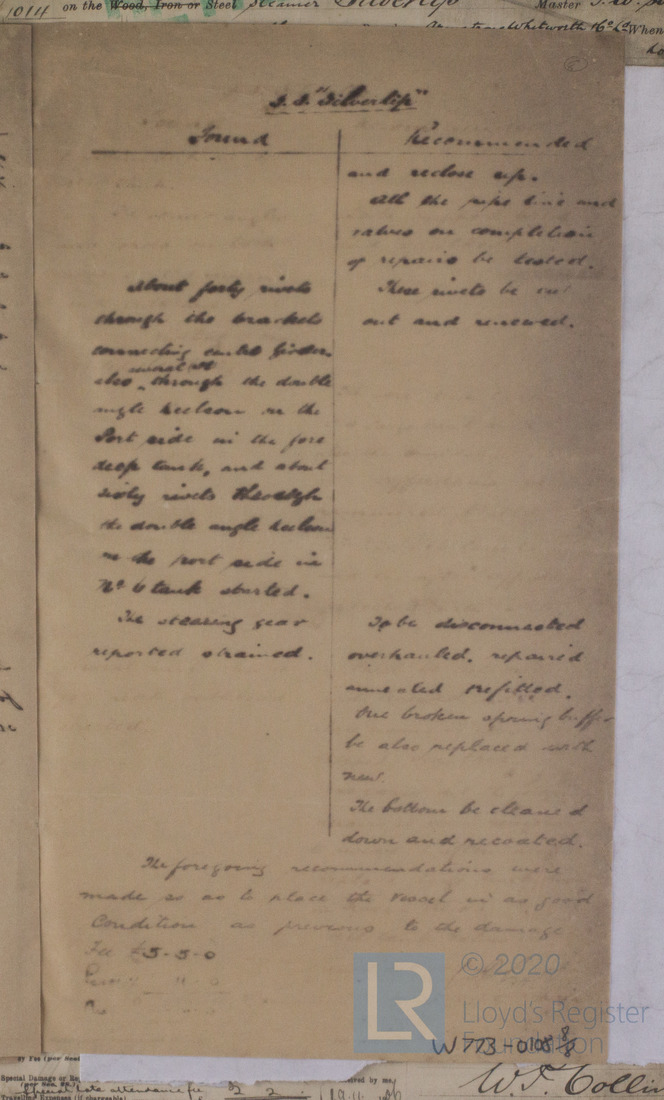 1014 on the Wood, Iron or Steel Steamer Silverlip Master
Whitworth 16 When
S.S. "Silverlip"
Found
About forty rivets
through the brackets
connecting centre Girder
also several at through the double
angle keelson on the
Port side in the fore
deep tank, and about
sixty rivets through
the double angle keelson
on the port side in
No 6 tank started.
The steering gear
reported strained.
Recommended
and reclose up.
All the pipe line and
valves on completion
of repairs be tested.
These rivets be cut
out and renewed.
To be disconnected
overhauled, repaired
annealed & refitted.
One broken spring buffer
be also replaced with
new.
The bottom be cleaned
down and recoated.
The foregoing recommendations were
made so as to place the vessel in as good
condition as previous to the damage
Fee £5-5-0
LR
© 2020
Lloyd's Register
Foundation
W773-0108 8/8
Special Damage or Re
Special late attendance fee 2 2
Travelling Expenses (if chargeable)
ived by me,
W. F. Collin